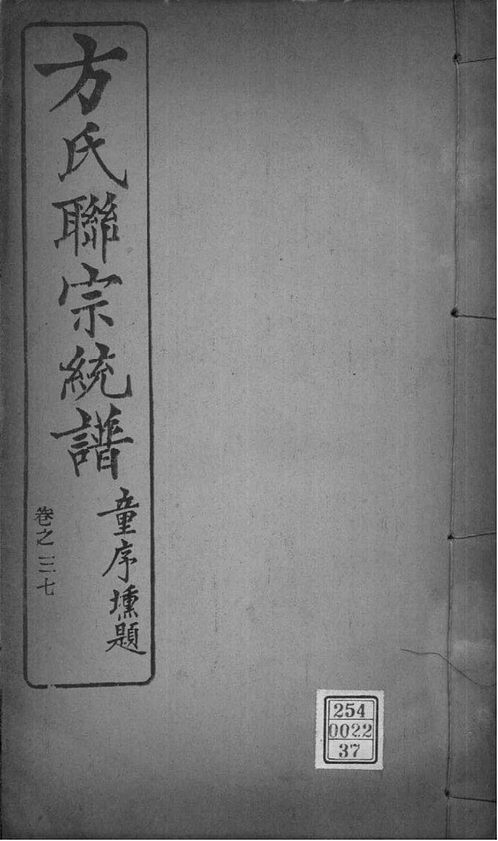 方氏聯宗統譜
童序壎題
卷之三七
254
0022
37